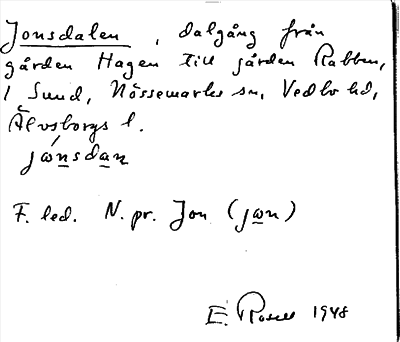 Jonsdalen, dalgång från
gården Hagen till gården Rabben,
i Sund, Nössemarks sn, Vedbo hd,
Älvsborgs l.
jwnsdan
F. led. N. pr. Jon (jwn)
E. Rosell 1948